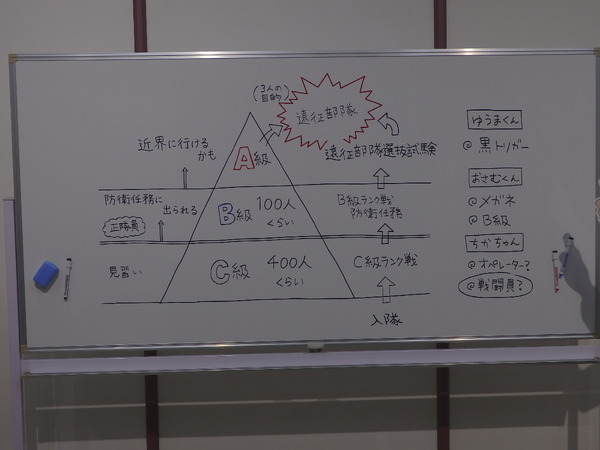 (3人の
目的)
遠征部隊
近界に行ける
かも
A級
遠征部隊選抜試験
防衛任務に
出られる
正隊員
B級 100人
くらい
B級ランク戦
防衛任務
見習い
C級 400人
くらい
C級ランク戦
入隊
ゆうまくん
@黒トリガー
おさむくん
@メガネ
@B級
ちかちゃん
@オペレーター?
@戦闘員?